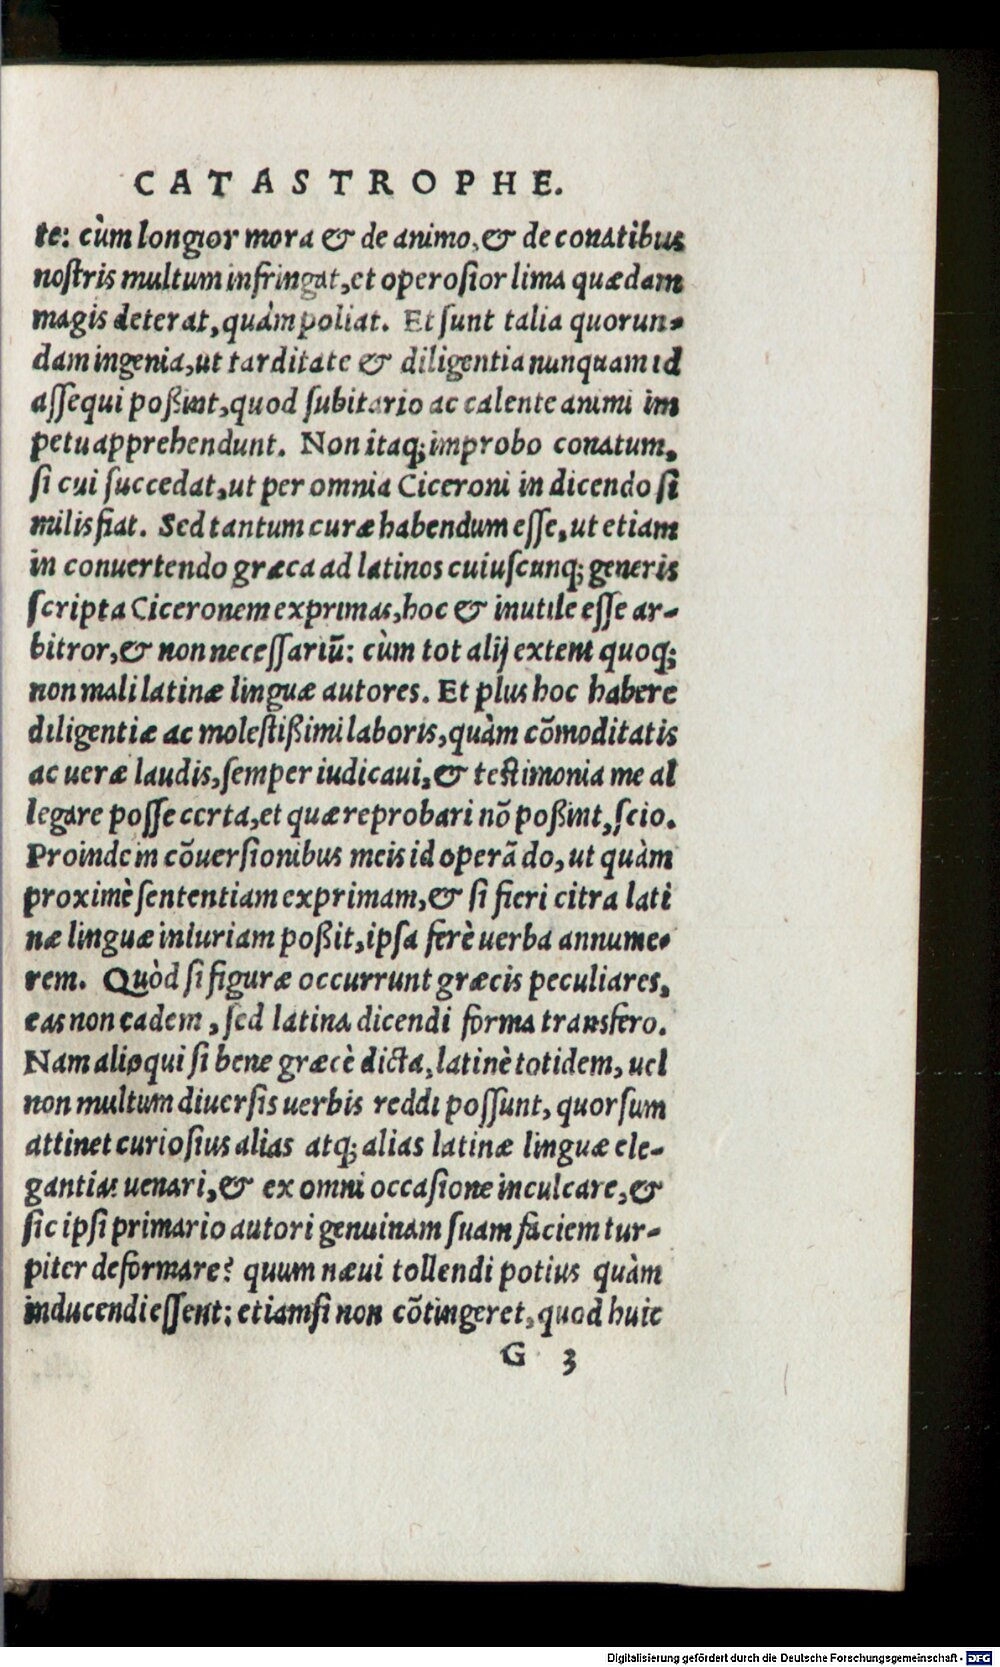 CATASTROPHE.
te: cùm longior mora & de animo, & de conatibus
nostris multum infringat, et operosior lima quædam
magis deterat, quàm poliat. Et sunt talia quorun-
dam ingenia, ut tarditate & diligentia nunquam id
assequi poßint, quod subitario ac calente animi im
petu apprehendunt. Non itaq; improbo conatum,
si cui succedat, ut per omnia Ciceroni in dicendo si
milis fiat. Sed tantum curæ habendum esse, ut etiam
in conuertendo græca ad latinos cuiuscunq; generis
scripta Ciceronem exprimas, hoc & inutile esse ar-
bitror, & non necessariũ: cùm tot alij extent quoq;
non mali latinæ linguæ autores. Et plus hoc habere
diligentiæ ac molestißimi laboris, quàm cõmoditatis
ac ueræ laudis, semper iudicaui, & testimonia me al
legare posse certa, et quæ reprobari nõ poßint, scio.
Proinde in cõuersionibus meis id operã do, ut quàm
proximè sententiam exprimam, & si fieri citra lati
næ linguæ iniuriam poßit, ipsa ferè uerba annume-
rem. Quòd si figuræ occurrunt græcis peculiares,
eas non eadem, sed latina dicendi forma transfero.
Nam alioqui si bene græcè dicta, latinè totidem, uel
non multum diuersis uerbis reddi possunt, quorsum
attinet curiosius alias atq; alias latinæ linguæ ele-
gantias uenari, & ex omni occasione inculcare, &
sic ipsi primario autori genuinam suam faciem tur-
piter deformare? quum næui tollendi potius quàm
inducendi essent: etiamsi non cõtingeret, quod huic
G 3
Digitalisierung gefördert durch die Deutsche Forschungsgemeinschaft - DFG